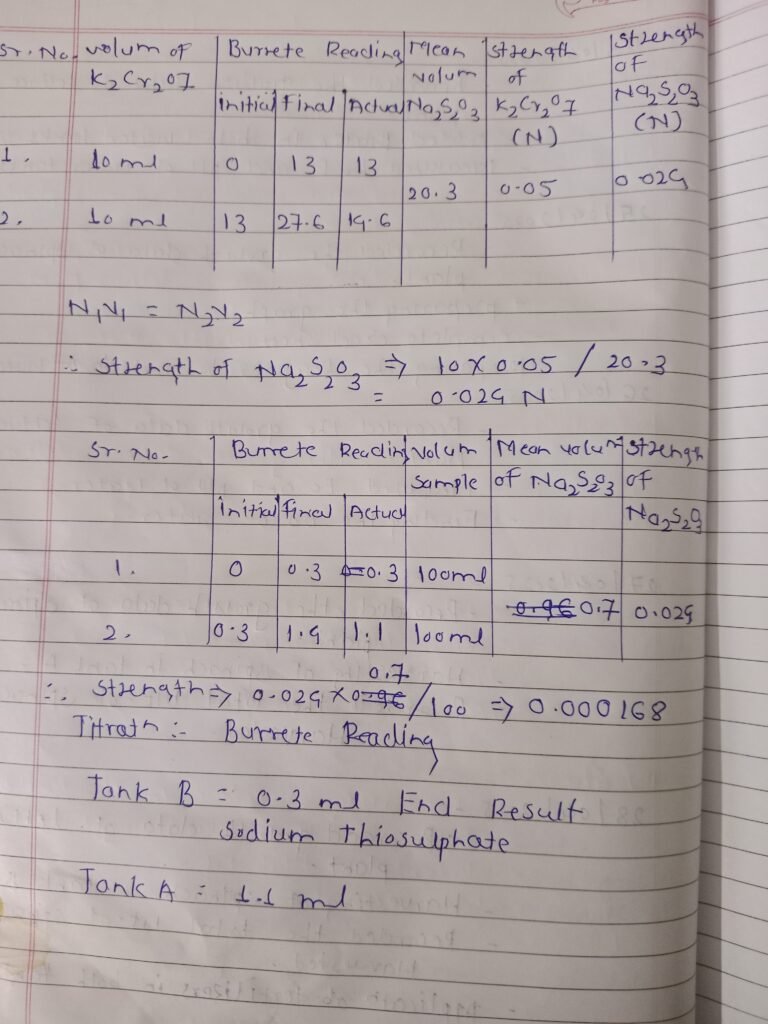 Sr. No. volum of K2Cr2O7 | Burrete Reading | Mean volum Na2S2O3 | Strength of K2Cr2O7 (N) | Strength of Na2S2O3 (N)
initial | Final | Actual
1. 10 ml | 0 | 13 | 13
20.3 | 0.05 | 0.024
2. 10 ml | 13 | 27.6 | 14.6
N1V1 = N2V2
∴ Strength of Na2S2O3 ⇒ 10 x 0.05 / 20.3
= 0.024 N
Sr. No. | Burrete Reading | Volum Sample | Mean volum of Na2S2O3 | Strength of Na2S2O3
initial | final | Actual
1. | 0 | 0.3 | 0.3 | 100ml
0.96 0.7 | 0.024
2. | 0.3 | 1.4 | 1.1 | 100ml
0.7
∴ Strength ⇒ 0.024 x 0.96 / 100 ⇒ 0.000168
Titratn :- Burrete Reading
Tank B = 0.3 ml End Result
Sodium thiosulphate
Tank A = 1.1 ml